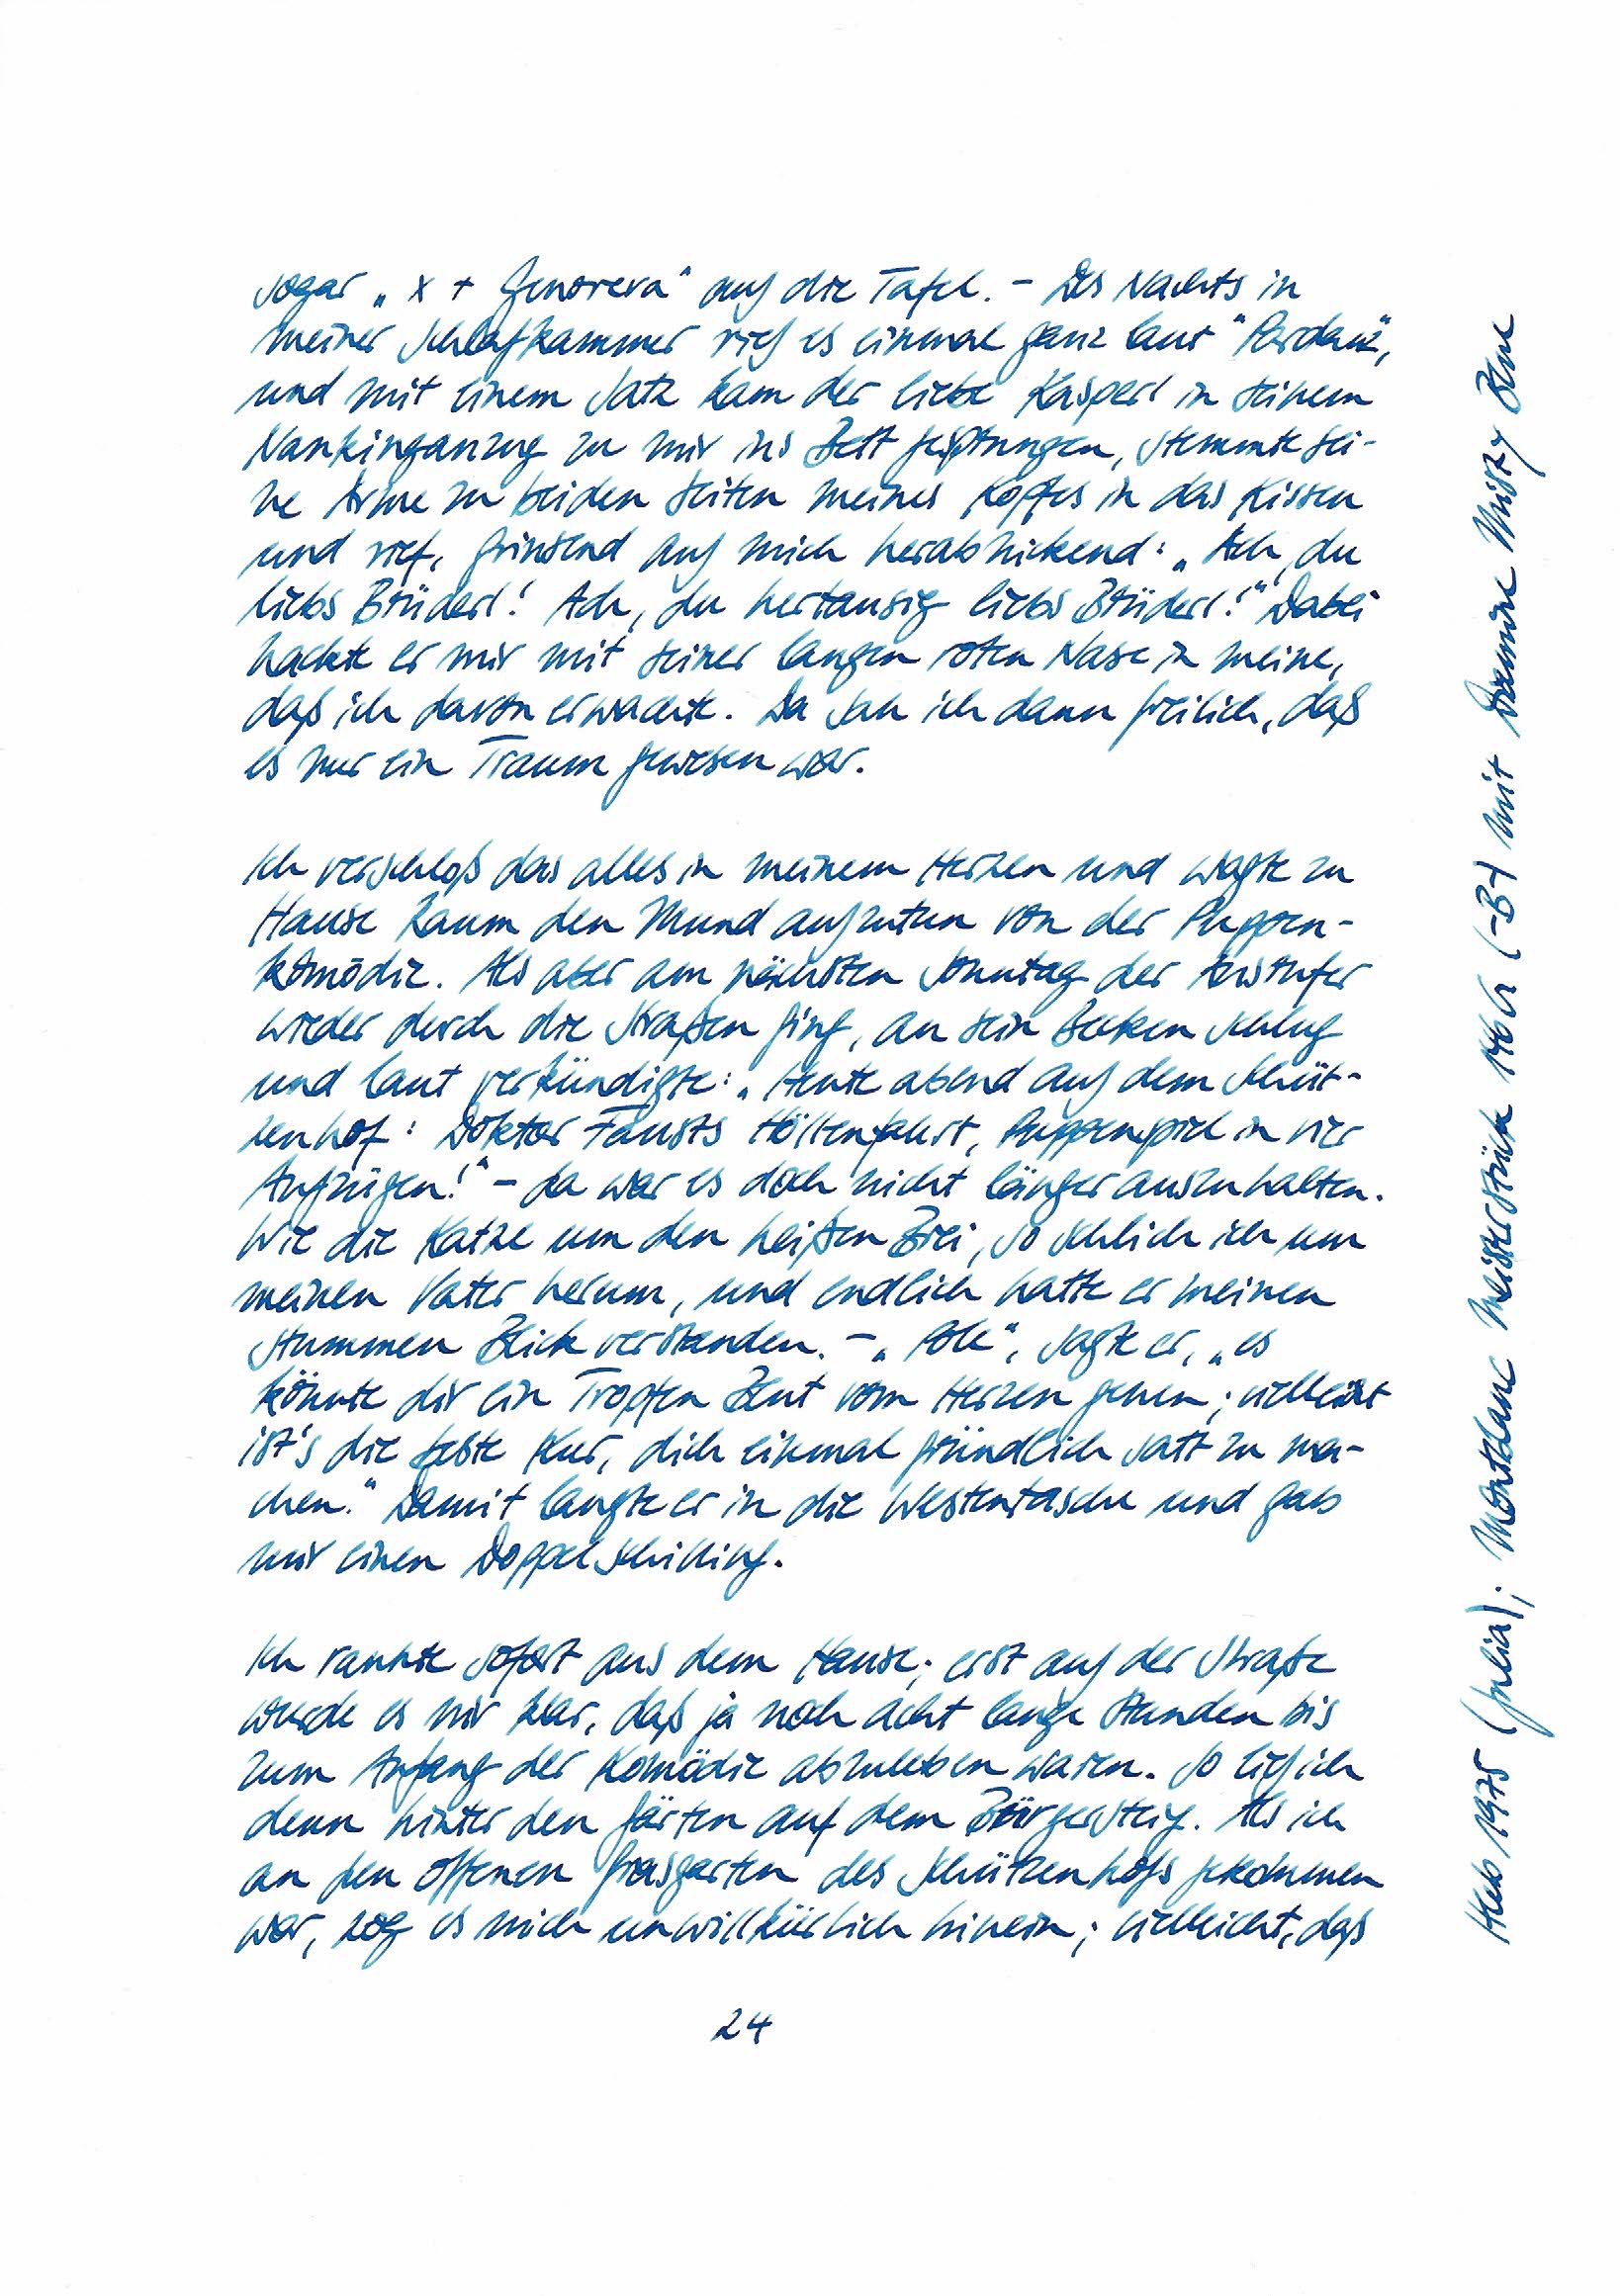 sogar „x + Genoveva“ auf die Tafel. – Des Nachts in
meiner Schlafkammer rief es einmal ganz laut "Pardauz",
und mit einem Satz kam der liebe Kasperl in seinem
Nankinganzug zu mir ins Bett gesprungen, stemmte sei-
ne Arme zu beiden Seiten meines Kopfes in das Kissen
und rief, grinsend auf mich herabnickend: „Ach, du
liebs Brüderl! Ach, du hertausig liebs Brüderl!“ Dabei
hackte er mir mit seiner langen roten Nase in meine,
daß ich davon erwachte. Da sah ich dann freilich, daß
es nur ein Traum gewesen war.
Ich verschloß das alles in meinem Herzen und wagte zu
Hause kaum den Mund aufzutun von der Puppen-
komödie. Als aber am nächsten Sonntag der Ausrufer
wieder durch die Straßen ging, an sein Becken schlug
und laut verkündigte: „Heute abend auf dem Schüt-
zenhof: Doktor Fausts Höllenfahrt, Puppenspiel in vier
Aufzügen!“ – da war es doch nicht länger auszuhalten.
Wie die Katze um den heißen Brei, so schlich ich um
meinen Vater herum, und endlich hatte er meinen
stummen Blick verstanden. – „Pole“, sagte er, „es
könnte dir ein Tropfen Blut vom Herzen gehen; vielleicht
ist's die beste Kur, dich einmal gründlich satt zu ma-
chen.“ Damit langte er in die Westentasche und gab
mir einen Doppelschilling.
Ich rannte sofort aus dem Hause; erst auf der Straße
wurde es mir klar, daß ja noch acht lange Stunden bis
zum Anfang der Komödie abzuleben waren. So lief ich
denn hinter den Gärten auf dem Bürgersteig. Als ich
an den offenen Grasgarten des Schützenhofs gekommen
war, zog es mich unwillkürlich hinein; vielleicht, daß
24
1975 (Julia); Montblanc Meisterstück 146 G (-B-) mit Diamine Misty Blue